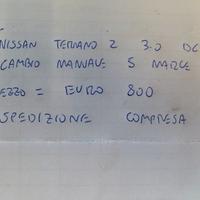 NISSAN TERRANO 2 3.0 DC
CAMBIO MANUALE 5 MARCE
EZZO = EURO 800
SPEDIZIONE COMPRESA